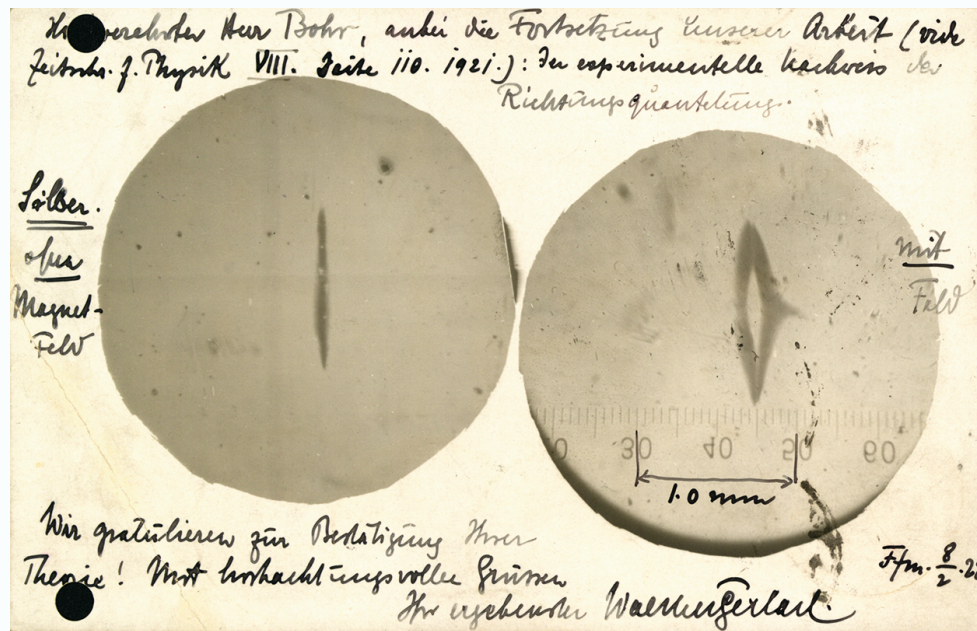 Hochverehrter Herr Bohr, anbei die Fortsetzung unserer Arbeit (vide
Zeitschr. f. Physik VIII. Seite 110. 1921.): Der experimentelle Nachweis der
Richtungsquantelung.
Silber.
ohne
Magnet-
Feld
mit
Feld
30 40 50 60
1.0 mm
Wir gratulieren zur Bestätigung Ihrer
Theorie! Mit hochachtungsvollen Grüssen
Ihr ergebenster Walther Gerlach.
Ffm. 8/2.22